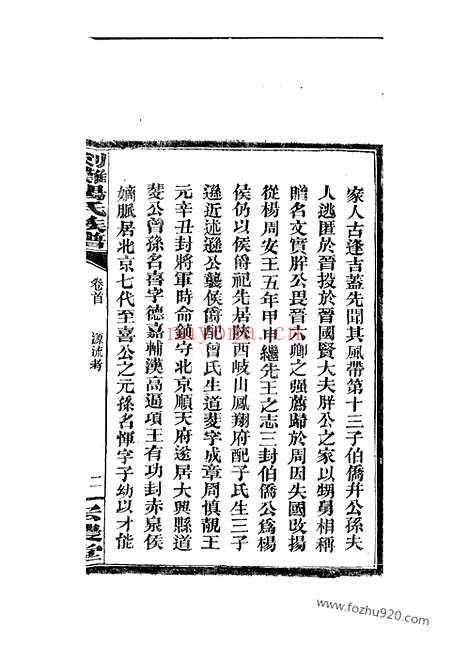 家人古逢吉蓋先聞其風帶第十三子伯僑幷公孫夫
人逃匿於晉投於晉國賢大夫胖公之家以甥舅相稱
贈名文實胖公畏晉六卿之强薦歸於周因失國改揚
從楊周安王五年甲申繼先王之志三封伯僑公爲楊
侯仍以侯爵祀先居陝西岐山鳳翔府配子氏生三子
遜近述遜公襲侯爵配曾氏生道斐字成章周慎靚王
元辛丑封將軍時命鎮守北京順天府遂居大興縣道
斐公曾孫名喜字德嘉輔漢高逼項王有功封赤泉侯
嫡脈居北京七代至喜公之元孫名惲字子幼以才能
楊氏族譜
卷首
源流考
二
堂
nayona.cn
www.fozhu920.com